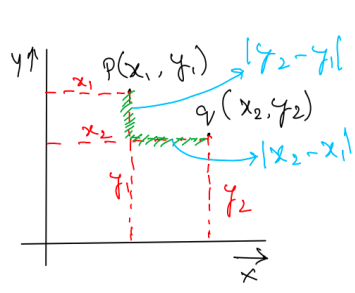 y↑ p(x₁, y₁) |y₂ - y₁|
x₁
q (x₂, y₂)
x₂
|x₂ - x₁|
y₁ y₂
x